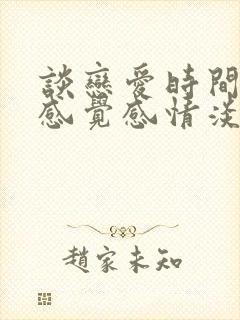 談戀愛時間
感覺感情淡
趙家未知